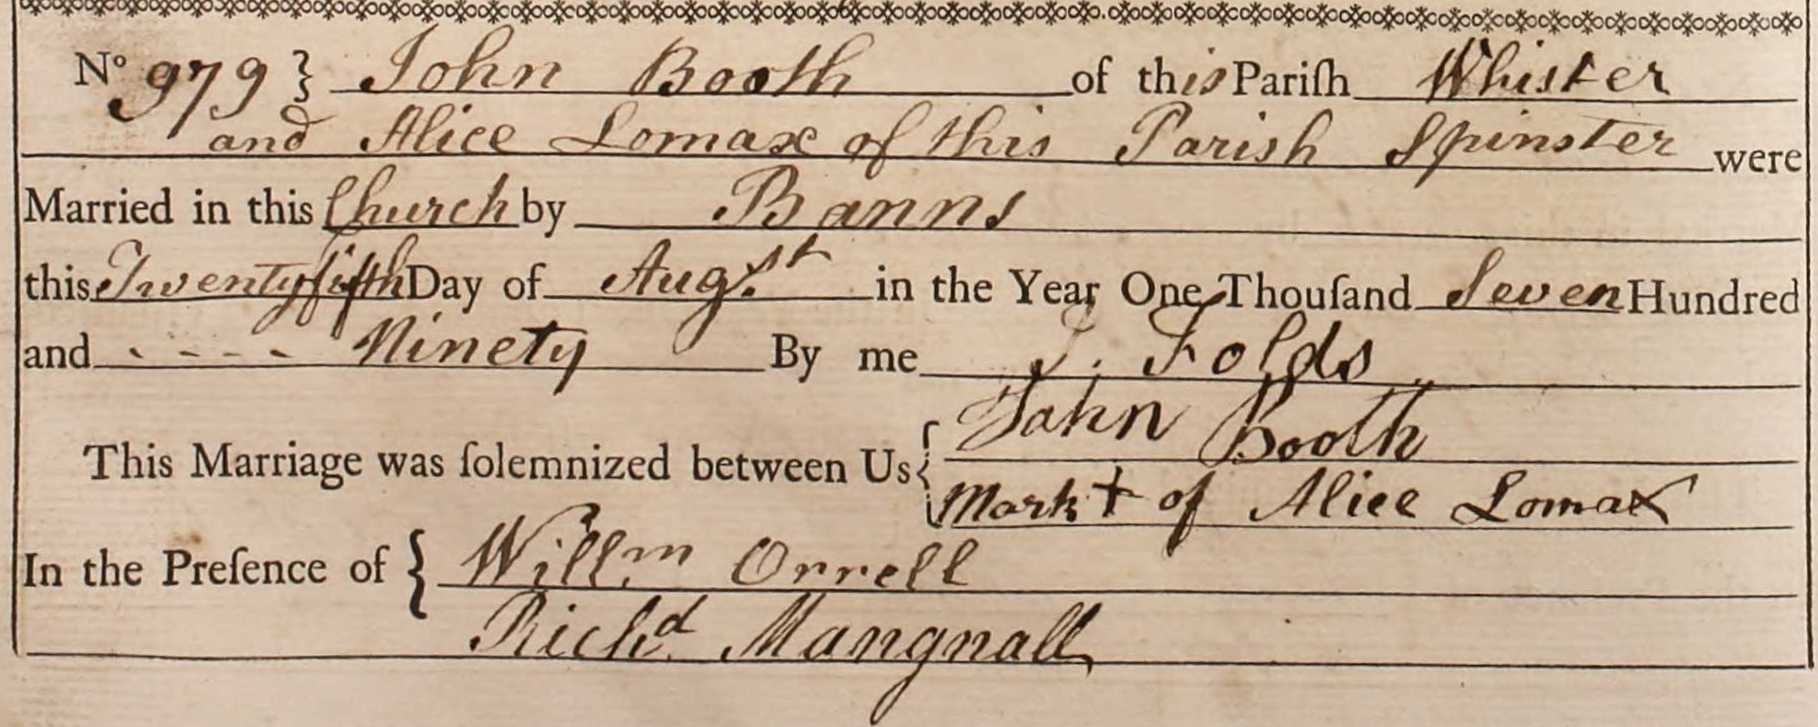 No 979 } John Booth of this Pariſh Whister
and Alice Lomax of this Parish Spinster were
Married in this Church by Banns
this Twentyfifth Day of Augst in the Year One Thouſand Seven Hundred
and - - - - Ninety By me J. Folds
This Marriage was ſolemnized between Us { John Booth
Mark + of Alice Lomax
In the Preſence of { Willm Orrell
Richd Mangnall